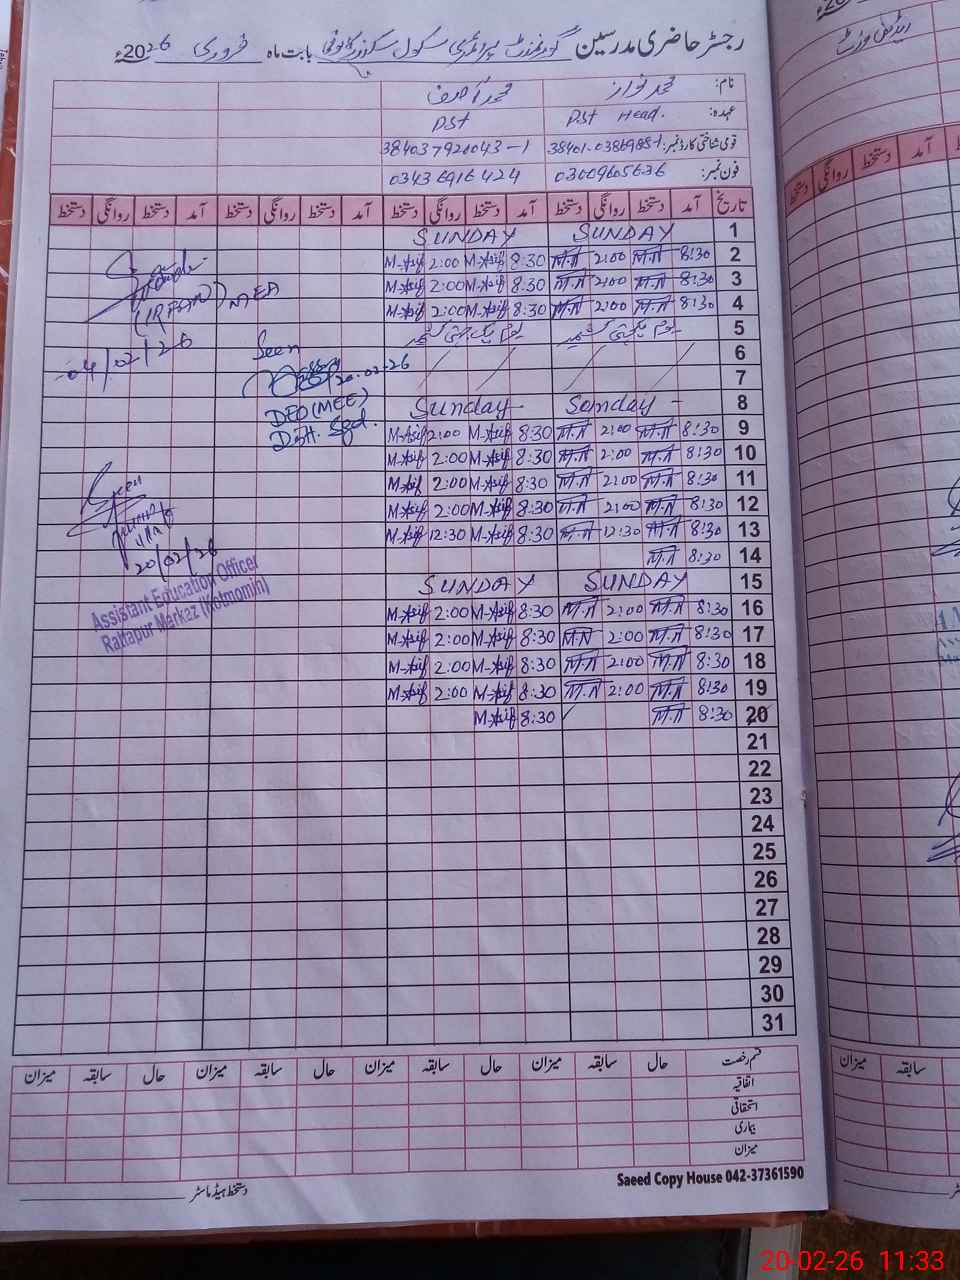 رجسٹر حاضری مدرسین گورنمنٹ پرائمری سکول بابت ماہ فروری 2026ء
نام: محمد نواز محمد آصف
عہدہ: P.st Head. P.st
قومی شناختی کارڈ نمبر: 38401-0386985-1 384037920043-1
فون نمبر: 03009605636 03436916424
تاریخ آمد دستخط روانگی دستخط آمد دستخط روانگی دستخط آمد دستخط روانگی دستخط آمد دستخط روانگی دستخط
1 SUNDAY SUNDAY
2 8:30 M.N 2:00 M.N 8:30 M-Asif 2:00 M-Asif
3 8:30 M.N 2:00 M.N 8:30 M-Asif 2:00 M-Asif
4 8:30 M.N 2:00 M.N 8:30 M-Asif 2:00 M-Asif
5 یوم یکجہتی کشمیر یوم یکجہتی کشمیر
6
7
8 Sunday - Sunday
9 8:30 M.N 2:00 M.N 8:30 M-Asif 2:00 M-Asif
10 8:30 M.N 2:00 M.N 8:30 M-Asif 2:00 M-Asif
11 8:30 M.N 2:00 M.N 8:30 M-Asif 2:00 M-Asif
12 8:30 M.N 2:00 M.N 8:30 M-Asif 2:00 M-Asif
13 8:30 M.N 12:30 M.N 8:30 M-Asif 12:30 M-Asif
14 8:30 M.N
15 SUNDAY SUNDAY
16 8:30 M.N 2:00 M.N 8:30 M-Asif 2:00 M-Asif
17 8:30 M.N 2:00 M.N 8:30 M-Asif 2:00 M-Asif
18 8:30 M.N 2:00 M.N 8:30 M-Asif 2:00 M-Asif
19 8:30 M.N 2:00 M.N 8:30 M-Asif 2:00 M-Asif
20 8:30 M.N 8:30 M-Asif
21
22
23
24
25
26
27
28
29
30
31
(IRFAN) MEA
04/02/26
Seen
20-02-26
DEO (MEE)
Distt. Sgd.
Seen
20/02/26
Assistant Education Officer
Rattapur Markaz (Kotmomin)
قسم رخصت حال سابقہ میزان حال سابقہ میزان حال سابقہ میزان حال سابقہ میزان
اتفاقیہ
استحقاقی
بیماری
میزان
Saeed Copy House 042-37361590
دستخط ہیڈ ماسٹر
دستخط روانگی دستخط آمد
میزان سابقہ
20-02-26 11:33